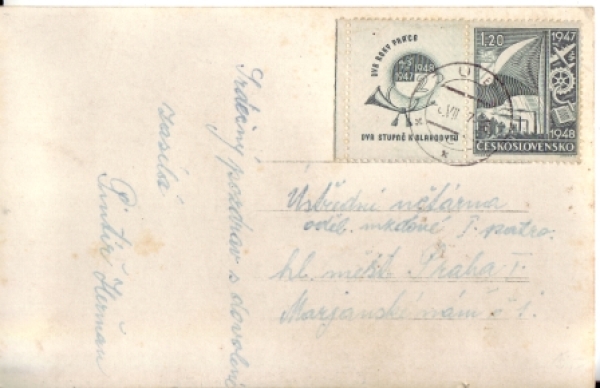 Srdečný pozdrav s dovolené
zasílá
Heřman
DVA ROKY PRÁCE
1947
1948
DVA STUPNĚ K BLAHOBYTU
1.20
1947
1948
ČESKOSLOVENSKO
Ústřední účtárna
oděl. mzdové I. patro.
hl. měst. Praha I.
Marjanské nám č 1.